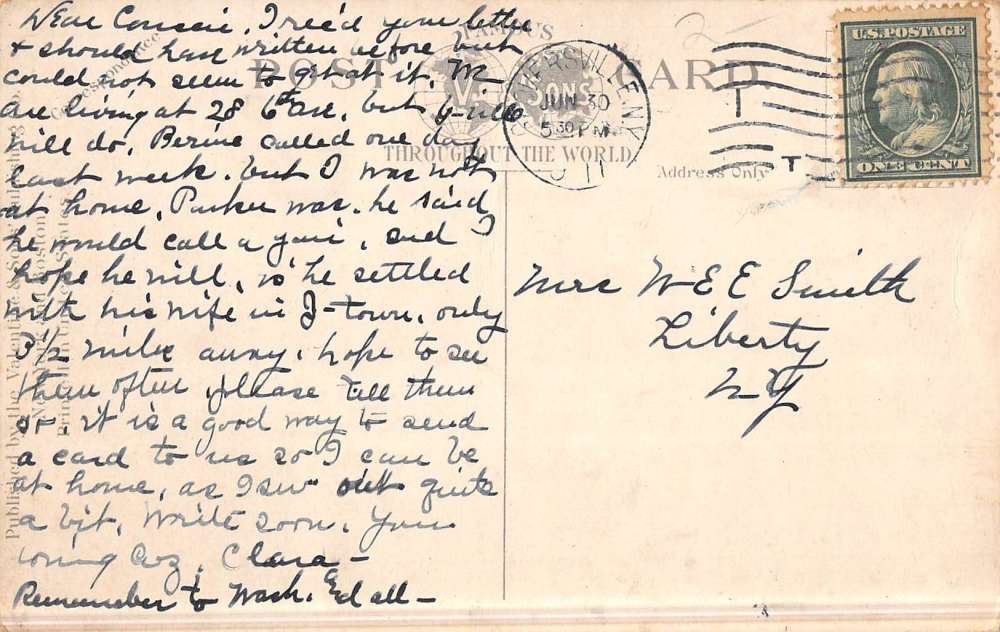 Dear Cousin, I rec'd your letter
& should have written before but
could not seem to get at it. We
are living at 28 6th Ave, but G-ville
will do, Bernie called one day
last week. but I was not
at home, Parker was. he said
he would call again, and I
hope he will, is he settled
with his wife in J-town, only
3½ miles away. hope to see
them often please tell them
so - it is a good way to send
a card to us so I can be
at home, as I sew out quite
a bit. Write soon, Your
loving Coz. Clara -
Remember to Wash. Ed all -
FAMOUS
POST CARD
V. & SONS
THROUGHOUT THE WORLD.
GLOVERSVILLE, N.Y.
JUN 30
530 PM
11
U.S. POSTAGE
ONE CENT
Address Only
2
Mrs W E E Smith
Liberty
N Y
Published by the Valentine & Sons'
Boston
Printed in United States